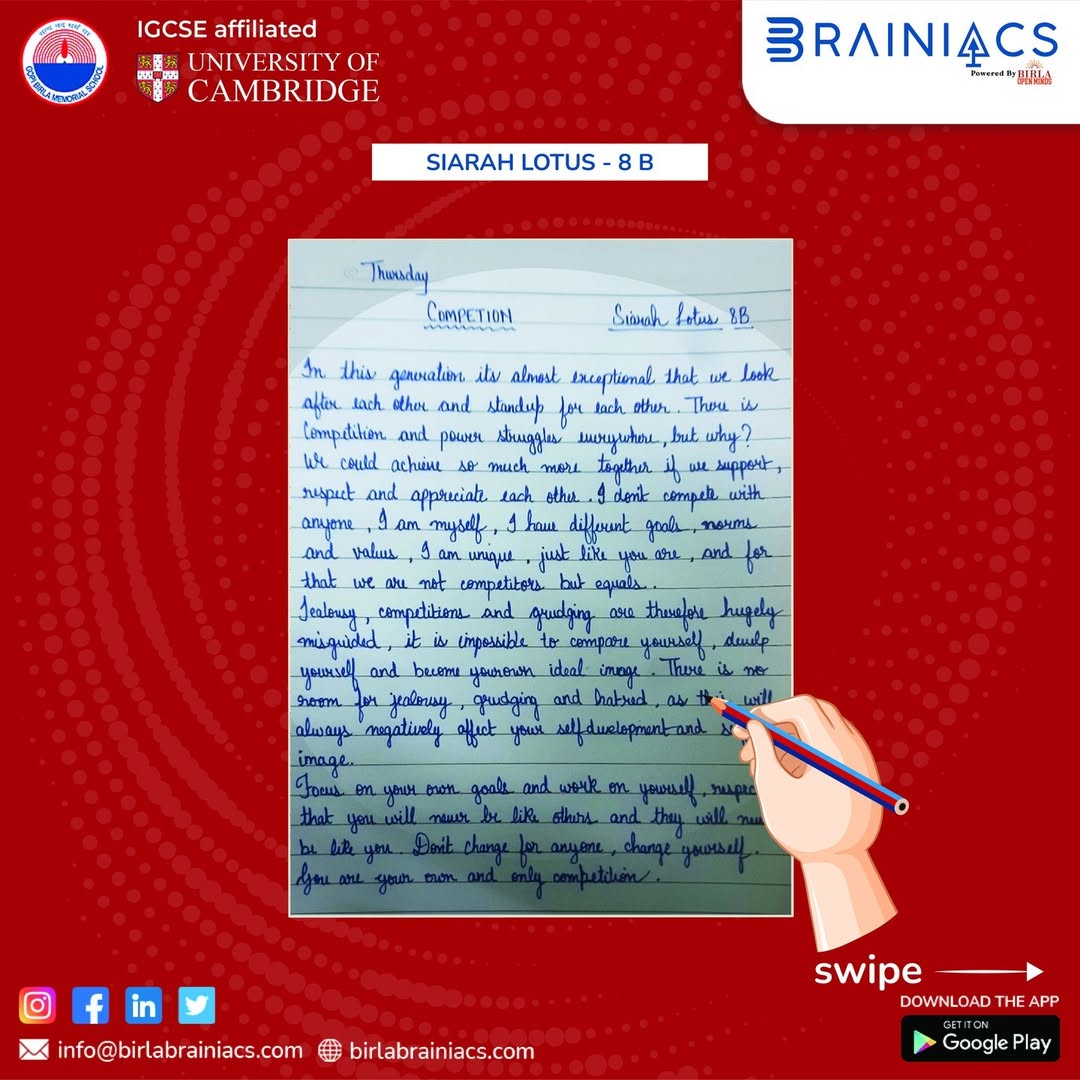 सत्यं वद धर्मं चर
GOPI BIRLA MEMORIAL SCHOOL
IGCSE affiliated
UNIVERSITY OF
CAMBRIDGE
BRAINIACS
Powered By BIRLA
OPEN MINDS
SIARAH LOTUS - 8 B
Thursday
COMPETION
Siarah Lotus 8B
In this generation its almost exceptional that we look
after each other and standup for each other. There is
Competition and power struggles everywhere, but why?
We could achieve so much more together if we support,
respect and appreciate each other. I don't compete with
anyone, I am myself, I have different goals, norms
and values, I am unique, just like you are, and for
that we are not competitors but equals..
Jealousy, competitions and grudging are therefore hugely
misguided, it is impossible to compare yourself, develp
yourself and become yourown ideal image. There is no
room for jealousy, grudging and hatred, as this will
always negatively affect your selfdevelopment and
image.
Focus on your own goals and work on yourself, respec
that you will never be like others and they will
be like you. Don't change for anyone, change yourself.
You are your own and only competition.
swipe
DOWNLOAD THE APP
GET IT ON
Google Play
info@birlabrainiacs.com birlabrainiacs.com